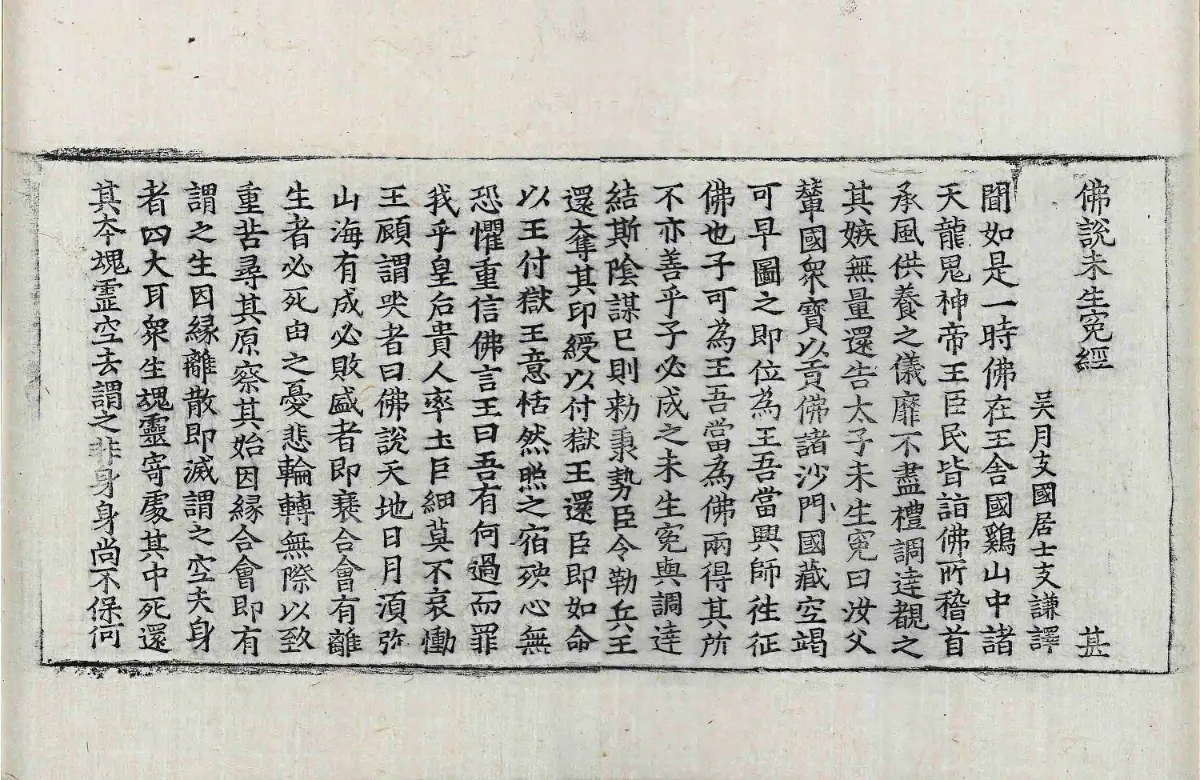 佛說未生冤經 甚
吳月支國居士支謙譯
聞如是一時佛在王舍國鷄山中諸
天龍鬼神帝王臣民皆詣佛所稽首
承風供養之儀靡不盡禮調達覩之
其嫉無量還告太子未生冤曰汝父
輦國衆寶以貢佛諸沙門國藏空竭
可早圖之即位爲王吾當興師往征
佛也子可爲王吾當爲佛兩得其所
不亦善乎子必成之未生冤與調達
結斯陰謀已則勑秉勢臣令勒兵王
還奪其印綬以付獄王還臣即如命
以王付獄王意恬然照之宿殃心無
恐懼重信佛言王曰吾有何過而罪
我乎皇后貴人率土巨細莫不哀慟
王顧謂哭者曰佛說天地日月湏弥
山海有成必敗盛者即衰合會有離
生者必死由之憂悲輪轉無際以致
重苦尋其原察其始因縁合會即有
謂之生因縁離散即滅謂之空夫身
者四大耳衆生魂靈寄處其中死還
其本魂靈空去謂之非身身尚不保何